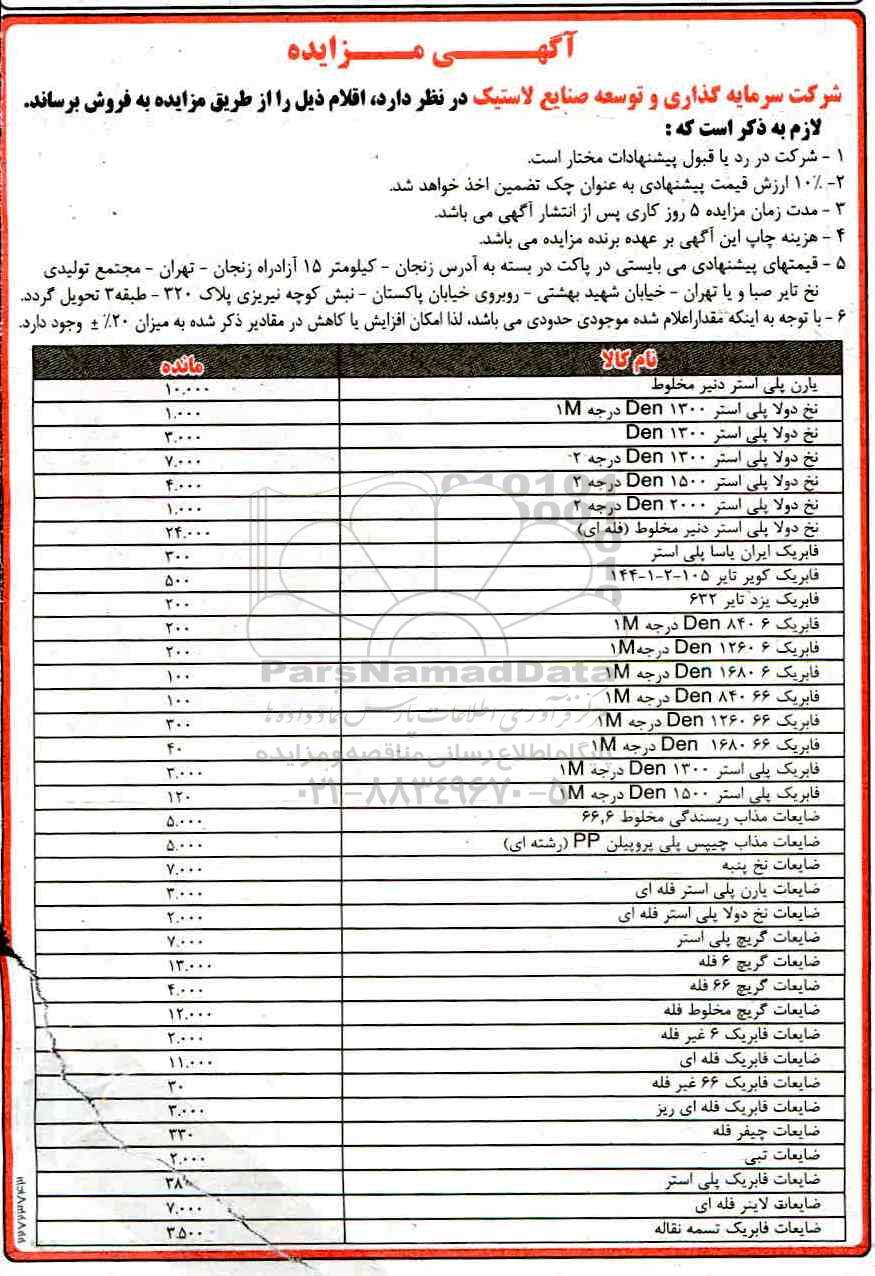 آگهی مزایده
شرکت سرمایه گذاری و توسعه صنایع لاستیک در نظر دارد، اقلام ذیل را از طریق مزایده به فروش برساند.
لازم به ذکر است که :
۱ - شرکت در رد یا قبول پیشنهادات مختار است.
۲- ۱۰٪ ارزش قیمت پیشنهادی به عنوان چک تضمین اخذ خواهد شد.
۳ - مدت زمان مزایده ۵ روز کاری پس از انتشار آگهی می باشد.
۴ - هزینه چاپ این آگهی بر عهده برنده مزایده می باشد.
۵ - قیمتهای پیشنهادی می بایستی در پاکت در بسته به آدرس زنجان - کیلومتر ۱۵ آزادراه زنجان - تهران - مجتمع تولیدی
نخ تایر صبا و یا تهران - خیابان شهید بهشتی - روبروی خیابان پاکستان - نبش کوچه نیریزی پلاک ۳۲۰ - طبقه۳ تحویل گردد.
۶ - با توجه به اینکه مقداراعلام شده موجودی حدودی می باشد، لذا امکان افزایش یا کاهش در مقادیر ذکر شده به میزان ۲۰٪ ± وجود دارد.
نام کالا مانده
یارن پلی استر دنیر مخلوط ۱۰.۰۰۰
نخ دولا پلی استر ۱۳۰۰ Den درجه ۱M ۱.۰۰۰
نخ دولا پلی استر ۱۳۰۰ Den ۳.۰۰۰
نخ دولا پلی استر ۱۳۰۰ Den درجه ۲ ۷.۰۰۰
نخ دولا پلی استر ۱۵۰۰ Den درجه ۲ ۴.۰۰۰
نخ دولا پلی استر ۲۰۰۰ Den درجه ۲ ۱.۰۰۰
نخ دولا پلی استر دنیر مخلوط (فله ای) ۲۴.۰۰۰
فابریک ایران یاسا پلی استر ۳۰۰
فابریک کویر تایر ۱۰۵-۲-۱-۱۴۴ ۵۰۰
فابریک یزد تایر ۶۳۲ ۲۰۰
فابریک ۶ ۸۴۰ Den درجه ۱M ۲۰۰
فابریک ۶ ۱۲۶۰ Den درجه۱M ۲۰۰
فابریک ۶ ۱۶۸۰ Den درجه ۱M ۱۰۰
فابریک ۶۶ ۸۴۰ Den درجه ۱M ۱۰۰
فابریک ۶۶ ۱۲۶۰ Den درجه ۱M ۳۰۰
فابریک ۶۶ ۱۶۸۰ Den درجه ۱M ۴۰
فابریک پلی استر ۱۳۰۰ Den درجه ۱M ۳.۰۰۰
فابریک پلی استر ۱۵۰۰ Den درجه ۱M ۱۲۰
ضایعات مذاب ریسندگی مخلوط ۶۶,۶ ۵.۰۰۰
ضایعات مذاب چیپس پلی پروپیلن PP (رشته ای) ۵.۰۰۰
ضایعات نخ پنبه ۷.۰۰۰
ضایعات یارن پلی استر فله ای ۳.۰۰۰
ضایعات نخ دولا پلی استر فله ای ۲.۰۰۰
ضایعات گریچ پلی استر ۷.۰۰۰
ضایعات گریچ ۶ فله ۱۳.۰۰۰
ضایعات گریچ ۶۶ فله ۴.۰۰۰
ضایعات گریچ مخلوط فله ۱۲.۰۰۰
ضایعات فابریک ۶ غیر فله ۲.۰۰۰
ضایعات فابریک فله ای ۱۱.۰۰۰
ضایعات فابریک ۶۶ غیر فله ۳۰
ضایعات فابریک فله ای ریز ۳.۰۰۰
ضایعات چیفر فله ۳۳۰
ضایعات تبی ۲.۰۰۰
ضایعات فابریک پلی استر
ضایعات لاینر فله ای ۷.۰۰۰
ضایعات فابریک تسمه نقاله ۳.۵۰۰
ParsNamadData
پایگاه اطلاع رسانی مناقصه و مزایده
۰۲۱-۸۸۳۴۹۶۷۰-۵